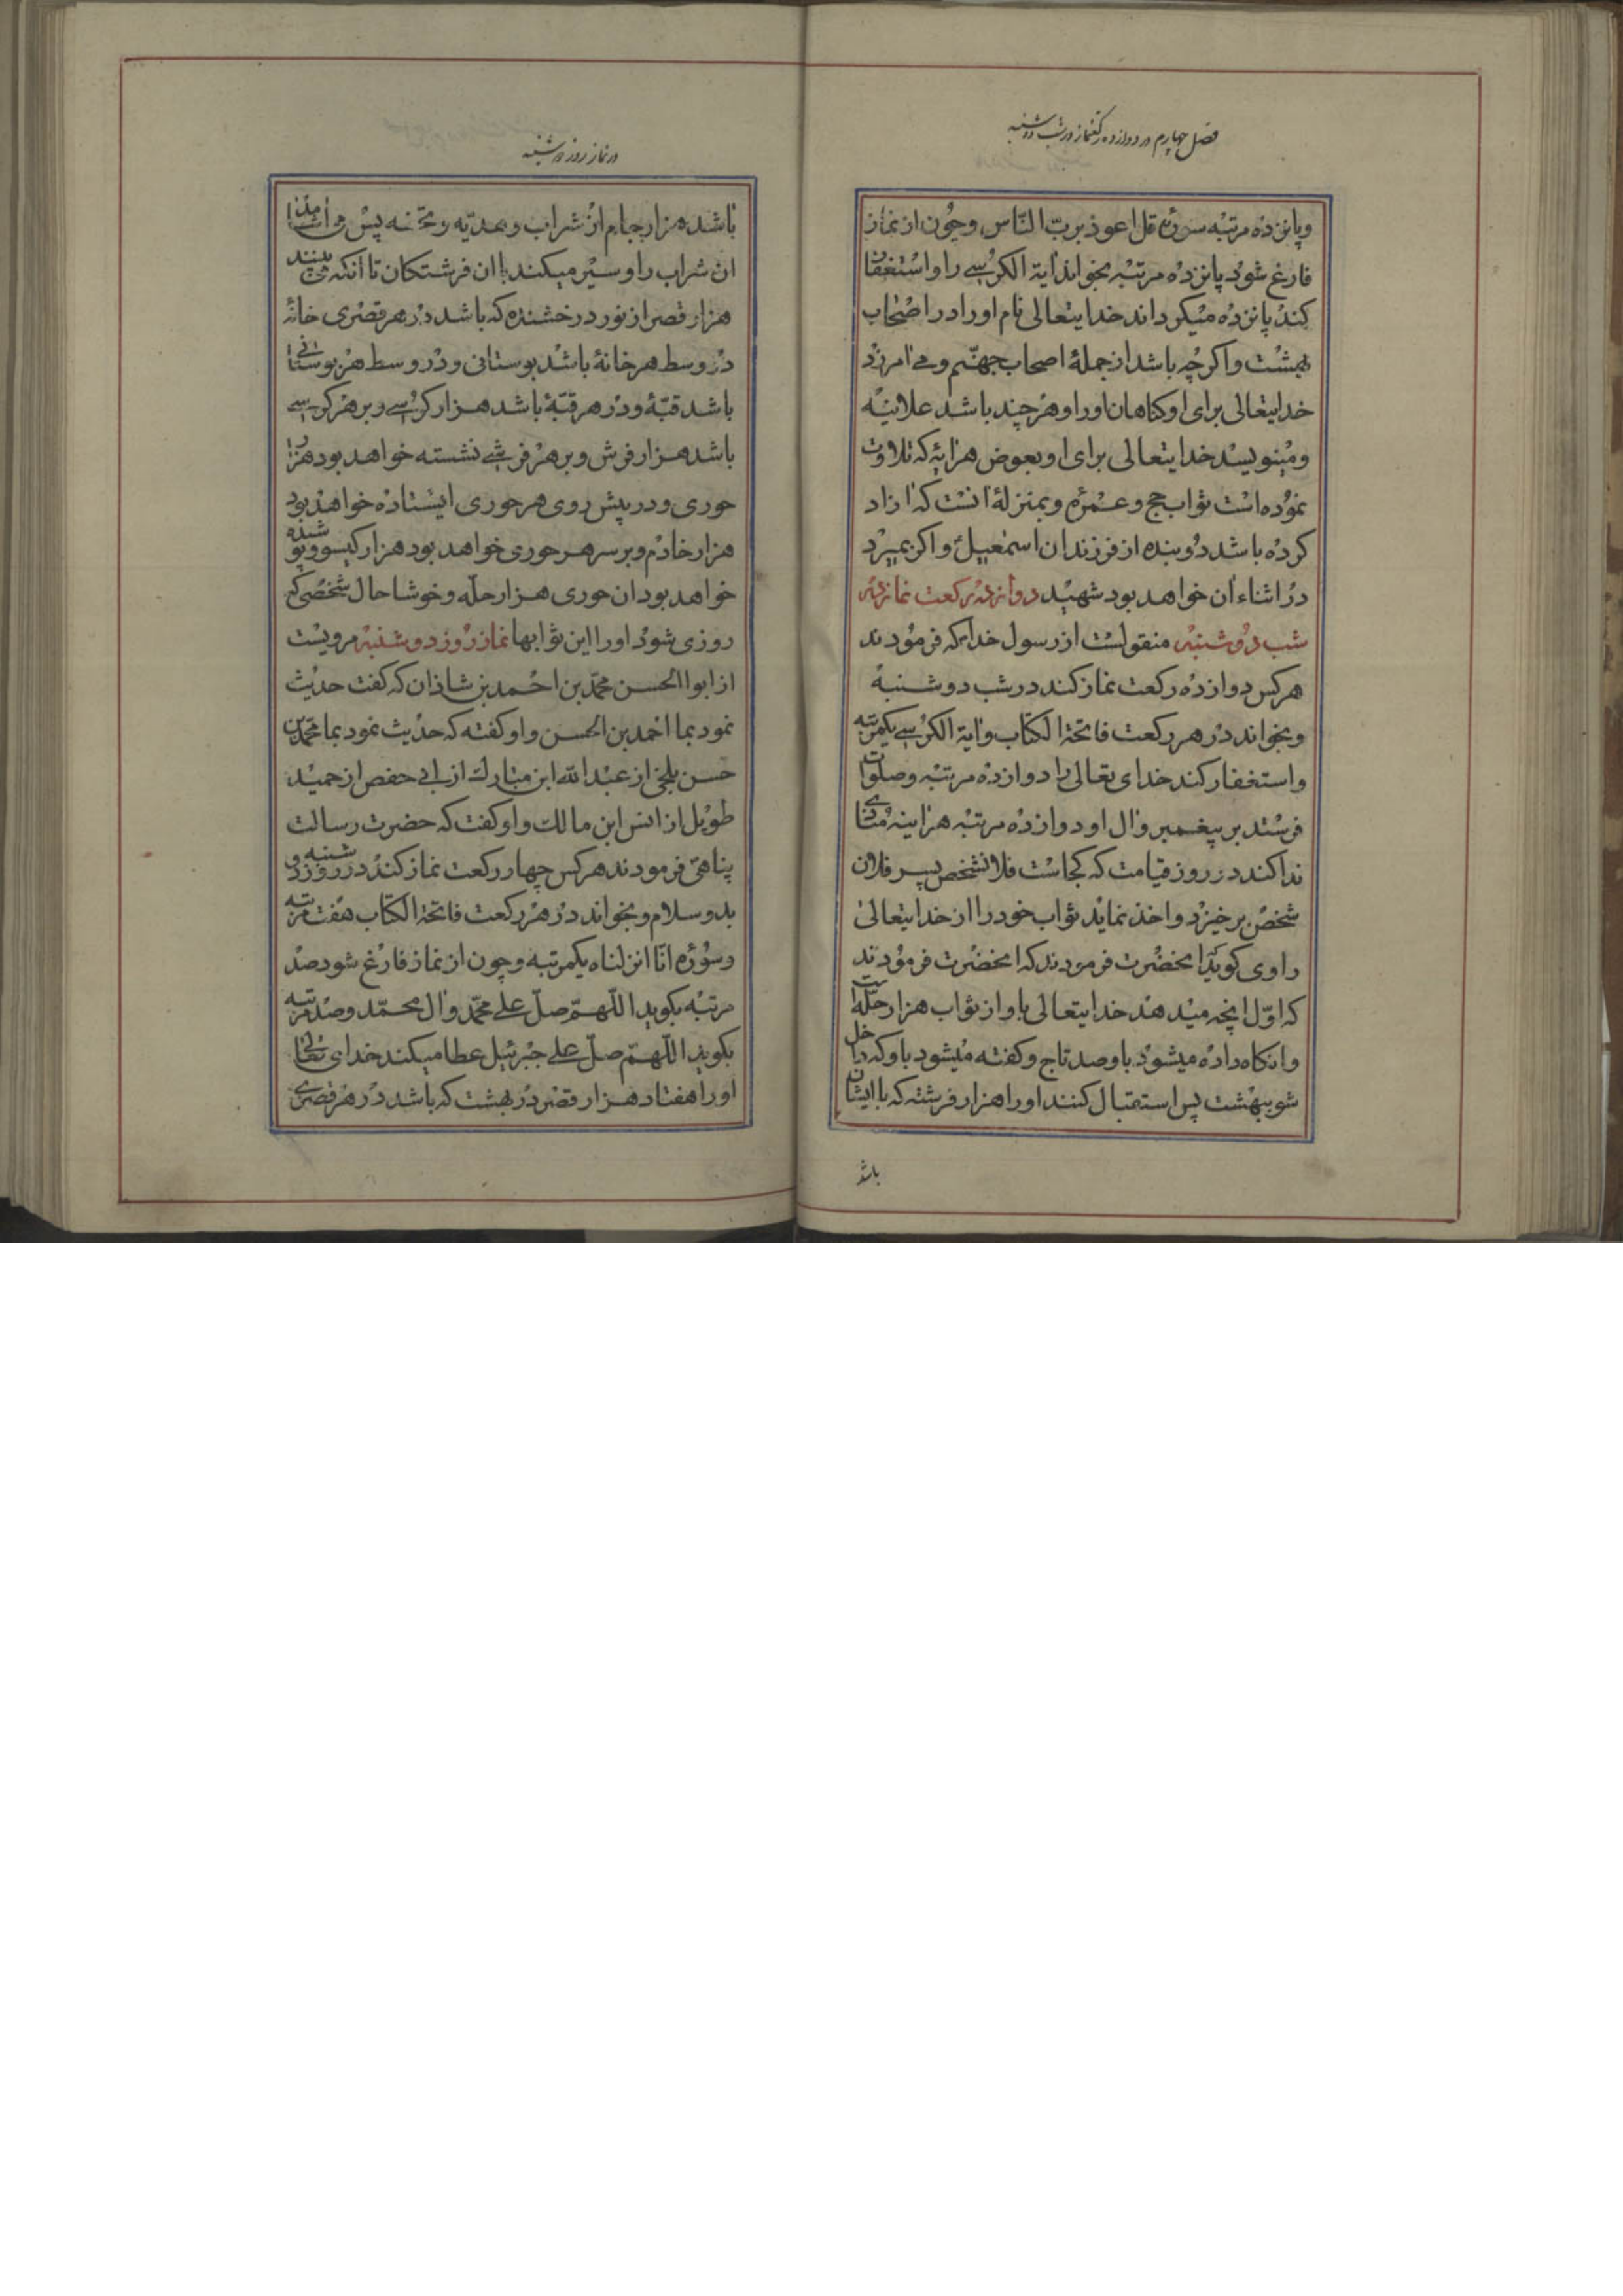 فصل چهارم در دوازده رکعتنماز در شب دوشنبه
و پانزده مرتبه سورهٔ قل اعوذ برب النّاس وچون از نماز
فارغ شود پانزده مرتبه بخواند ایة الکرسے را و استغفار
کند پانزده میکرداند خدایتعالی نام او را در اصحاب
بهشت و اکرچه باشد از جملهٔ اصحاب جهنّم و می امرزد
خدایتعالی برای او کناهان او را و هر چند باشد علانیه
و مینویسد خدایتعالی برای او بعوض هر ایهٔ که تلاوت
نموده است ثواب حج و عمره و بمنزلهٔ انست که ازاد
کرده باشد دو بنده از فرزندان اسمعیل و اکر بمیرد
در اثناء ان خواهد بود شهید دوازده رکعت نماز در
شب دوشنبه منقولست از رسول خدا که فرمودند
هرکس دوازده رکعت نماز کند در شب دوشنبه
و بخواند در هر رکعت فاتحة الکتاب و ایة الکرسے یکمرتبه
و استغفار کند خدای تعالی را دوازده مرتبه و صلوات
فرستد بر پیغمبر و ال او دوازده مرتبه هراینه منادی
ندا کند در روز قیامت که کجاست فلانشخص پسر فلان
شخص برخیزد و اخذ نماید ثواب خود را از خدایتعالی
راوی کوید انحضرت فرمودند که انحضرت فرمودند
که اوّل انچه میدهند خدایتعالی باو از ثواب هزار حلّه است
و انکاه داده میشود باو صد تاج و کفته میشود باو که داخل
شو ببهشت پس استقبال کنند او را هزار فرشته که با ایشان
باشد
در نماز روز دوشنبه
باشد هزار جام از شراب و هدیّه و تحفه پس می اشامد
ان شراب را و سیر میکند با ان فرشتکان تا انکه می بینند
هزار قصر از نور درخشنده که باشد در هر قصری خانهٔ
در وسط هر خانهٔ باشد بوستانی و در وسط هر بوستانی
باشد قبّهٔ و در هر قبّهٔ باشد هزار کرسے و بر هر کرسے
باشد هزار فرش و بر هر فرشے نشسته خواهد بود هزار
حوری و در پیش روی هر حوری ایستاده خواهند بود
هزار خادم و بر سر هر حوری خواهد بود هزار کیسو و پوشنده
خواهد بود ان حوری هزار حلّه و خوشا حال شخصی که
روزی شود او را این ثوابها نماز روز دوشنبه مرویست
از ابوا الحسن محمّد بن احمد بن شاذان که کفت حدیث
نمود بما احمد بن الحسن و او کفته که حدیث نمود بما محمّد بن
حسن بلخی از عبد الله ابن مبارک از ابی حفص از حمید
طویل از انس ابن مالک و او کفت که حضرت رسالت
پناهی فرمودند هرکس چهار رکعت نماز کند در روز دوشنبه
بدو سلام و بخواند در هر رکعت فاتحة الکتاب هفت مرتبه
و سوره انّا انزلناه یکمرتبه و چون از نماز فارغ شود صد
مرتبه بکوید اللّهمّ صلّ علی محمّد و ال محمّد و صد مرتبه
بکوید اللّهمّ صلّ علی جبرئیل عطا میکند خدای تعالی
او را هفتاد هزار قصر در بهشت که باشد در هر قصری